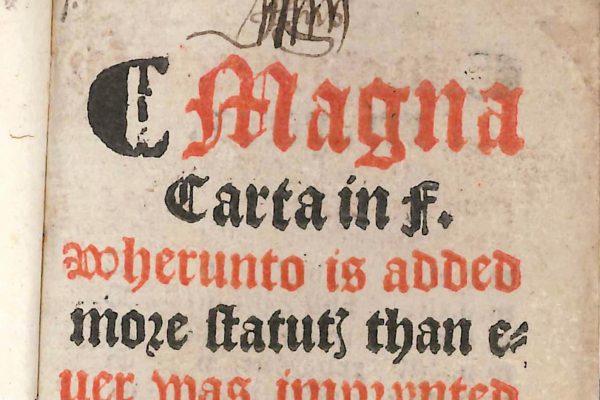 Magna
Carta in f.
wherunto is added
more statutꝫ than e⸗
uer was imprynted